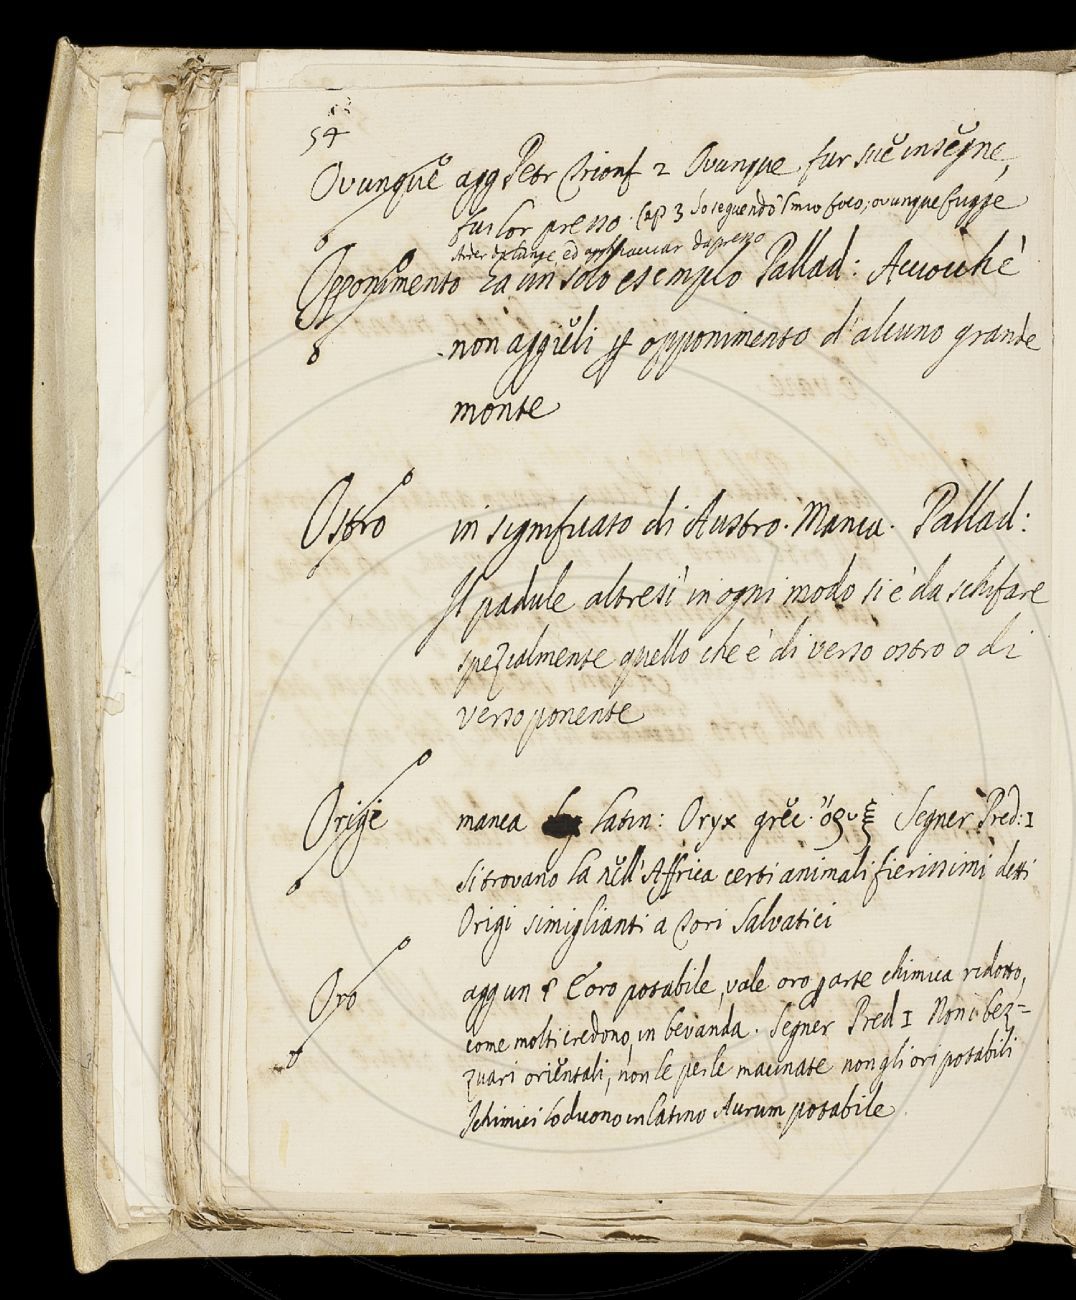 54
Ovunque agg Petr Trionf 2 Ovunque fur sue insegne,
fui lor presso. Cap 3 Io seguendo 'l mio foco, ovunque fugge
Arder da lunge, ed agghiacciar da presso
Opponimento Ha un solo esempio Pallad: Acciocchè
non aggieli p opponimento d'alcuno grande
monte
Ostro in significato di Austro. Manca. Pallad:
Il padule altresì in ogni modo si è da schifare
spezialmente quello che è di verso ostro o di
verso ponente
Orige manca Latin: Oryx grec. ὄρυξ Segner Pred: I
Si trovano là nell'Affrica certi animali fierissimi detti
Origi simiglianti a Tori Salvatici
Oro agg un § L'oro potabile, vale oro p arte chimica ridotto,
come molti credono, in bevanda. Segner Pred I Non i bez=
zuari orientali, non le perle macinate non gli ori potabili
I chimici lo dicono in latino Aurum potabile